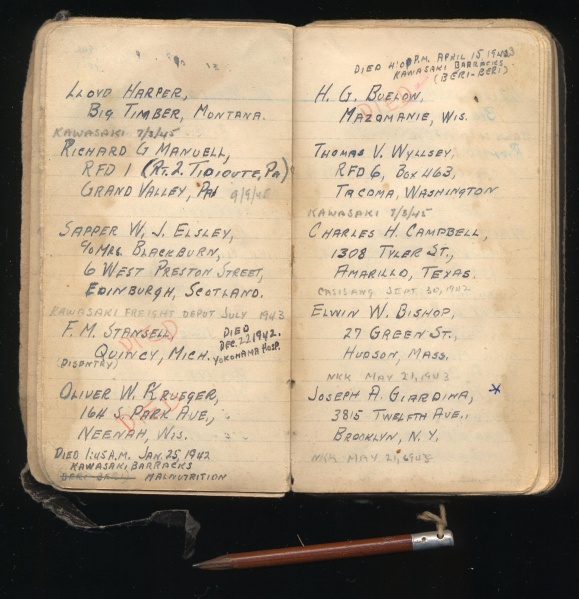 Lloyd Harper,
Big Timber, Montana.
Kawasaki 7/3/45
Richard G Manuell,
RFD 1 (Rt. 2 Tidioute, Pa)
Grand Valley, Pa 9/9/45
Sapper W. J. Elsley,
℅ Mrs. Blackburn,
6 West Preston Street,
Edinburgh, Scotland.
Kawasaki Freight Depot July 1943
F. M. Stansell,
Quincy, Mich.
(Disentry)
DIED
Died
Dec. 22 1942.
Yokohama Hosp.
Oliver W. Krueger,
164 S. Park Ave.,
Neenah, Wis.
DIED
Died 1:45 A.M. Jan. 25, 1942
Kawasaki Barracks
Beri-Beri Malnutrition
Died P.M. April 15 1943
Kawasaki Barracks
(Beri-Beri)
H. G. Buelow,
Mazomanie, Wis.
DIED
Thomas V. Wyllsey,
RFD 6, Box 463,
Tacoma, Washington
Kawasaki 7/3/45
Charles H. Campbell,
1308 Tyler St.,
Amarillo, Texas.
Casisang Sept. 30, 1942
Elwin W. Bishop,
27 Green St.,
Hudson, Mass.
NKK May 21, 1943
Joseph A. Giardina, *
3815 Twelfth Ave.,
Brooklyn, N.Y.
NKK May 21, 1943